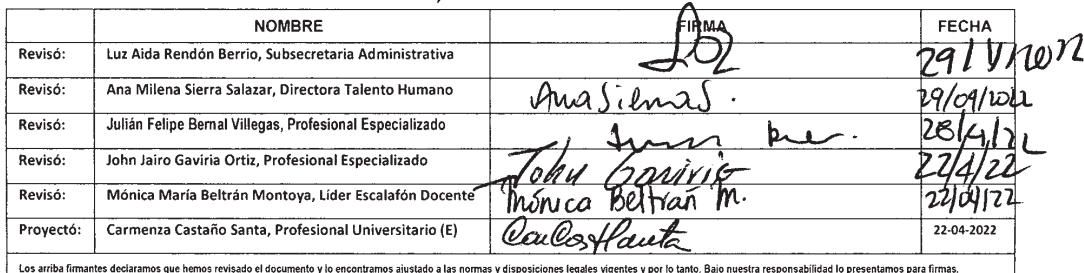 NOMBRE FIRMA FECHA
Revisó: Luz Aida Rendón Berrio, Subsecretaria Administrativa
Revisó: Ana Milena Sierra Salazar, Directora Talento Humano AnaSierraS. 29/04/2022
Revisó: Julián Felipe Bernal Villegas, Profesional Especializado 28/4/22
Revisó: John Jairo Gaviria Ortiz, Profesional Especializado John Gaviria 22/4/22
Revisó: Mónica María Beltrán Montoya, Líder Escalafón Docente Mónica Beltrán M. 22/04/22
Proyectó: Carmenza Castaño Santa, Profesional Universitario (E) 22-04-2022
Los arriba firmantes declaramos que hemos revisado el documento y lo encontramos ajustado a las normas y disposiciones legales vigentes y por lo tanto. Bajo nuestra responsabilidad lo presentamos para firmas.